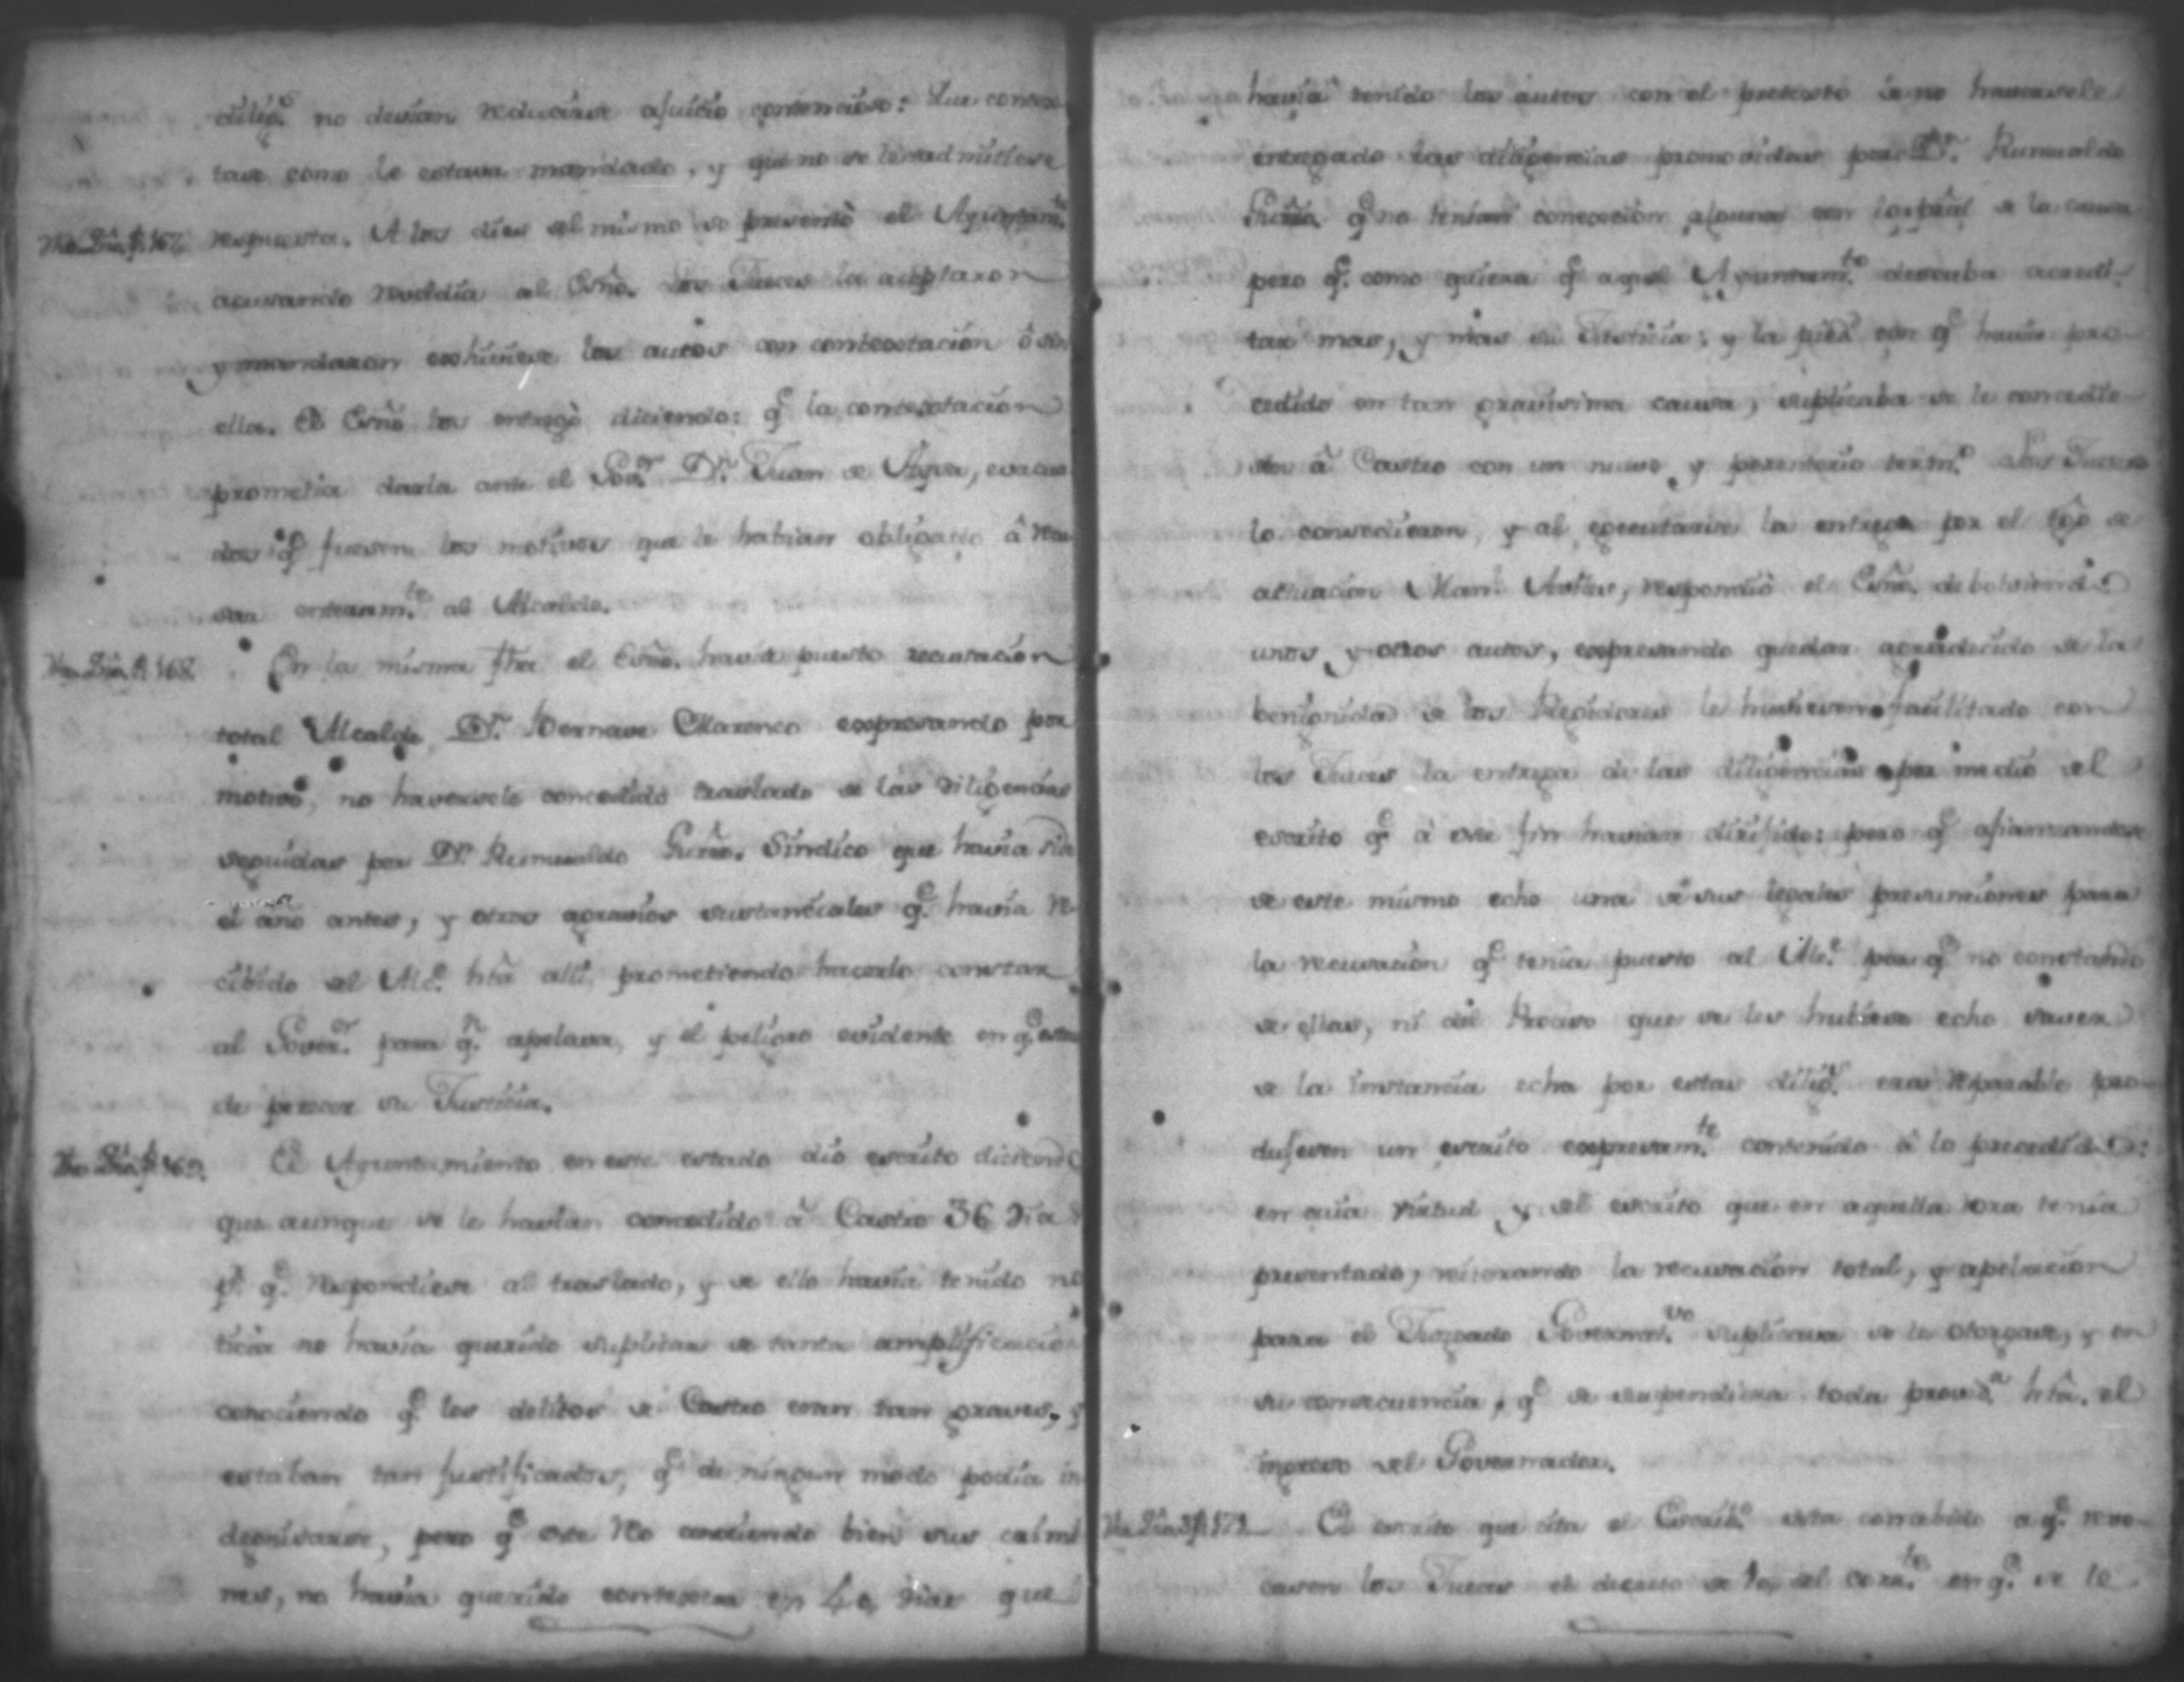 dilig.s no devian reducirse a juicio contencioso: Que contes
tase como le estava mandado, y que no se le admitiese
respuesta. A los dies del mismo se presentò el Ayuntam.to
acusando reveldia al Esño. Los Jueces la aceptaron
y mandaron exhiviese los autos con contestación ô sin
ella. El Esño los entregò diciendo: q.e la contestación
prometia darla ante el Gov.or D.n Juan de
q.e fuesen los motivos que le habian obligado â recu
sar enteram.te al Alcalde.
En la misma fha el Esño. havia puesto recusación
total Alcalde D.n Bernave Marenco expresando por
motivo, no haversele concedido traslado de las diligencias
seguidas por D.n Rumualdo Síndico que havia sido
el año antes, y otros agravios sustanciales q.e havia re
cibido del Alc.e htâ alli, prometiendo hacerlo constar
al Gover.or para q.n apelava, y el peligro evidente en q.e estava
de perecer su Justicia.
El Ayuntamiento en este estado dio escrito diciendo
que aunque se le havian concedido â Castro 36 dias
p.a q.e respondiese al traslado, y de ello havia tenido no
ticia no havia querido suplicar de tanta amplificacion
conociendo q.e los delitos de Castro eran tan graves, y
estaban tan justificados, q.e de ningun modo podia in
demnisarse, pero q.e este Reo conociendo bien sus crimi
nes, no havia querido contestar en 40 dias que
havia tenido los autos con el pretexto de no haversele
entregado las diligencias promovidas por D.n Rumualdo
q.e no tenian conección alguna con lo pral de la causa
pero q.e como quiera q.e aquel Ayuntam.to deseaba acredi-
tar mas, y mas su Justicia; y la con q.e havia pro-
cedido en tan gravisima causa, suplicaba se le concedie-
sen â Castro con un nuevo y perentorio term.o Los Jueces
lo concedieron, y al executarse la entrega por el tgo de
actuacion respondiò el Esño. debolviendo
unos y otros autos, expresando quedar agradecido de la
benignidad de los Regidores le huviesen facilitado con
los Jueces la entrega de las diligencias por medio del
escrito q.e â este fin havian dirijido: pero q.e afiansandose
de este mismo echo una de sus legales presunciones para
la recusacion q.e tenia puesto al Alc.e por q.e no constando
de ellas, ni del Proceso que se les hubiese echo saver
de la instancia echa por estas dilig.s era reparable pro-
dujesen un escrito expresam.te contenido â lo precedido:
en cuia virtud y del escrito que en aquella ora tenia
presentado, reiterando la recusacion total, y apelacion
para el Juzgado Governat.vo suplicava se le otorgase, y en
su consecuencia, q.e se suspendiera toda provid.a htâ. el
ingreso del Governador.
El escrito que cita el Escrib.o esta concebido a q.e revo-
casen los Jueces el decreto de del corr.te en q.e se le